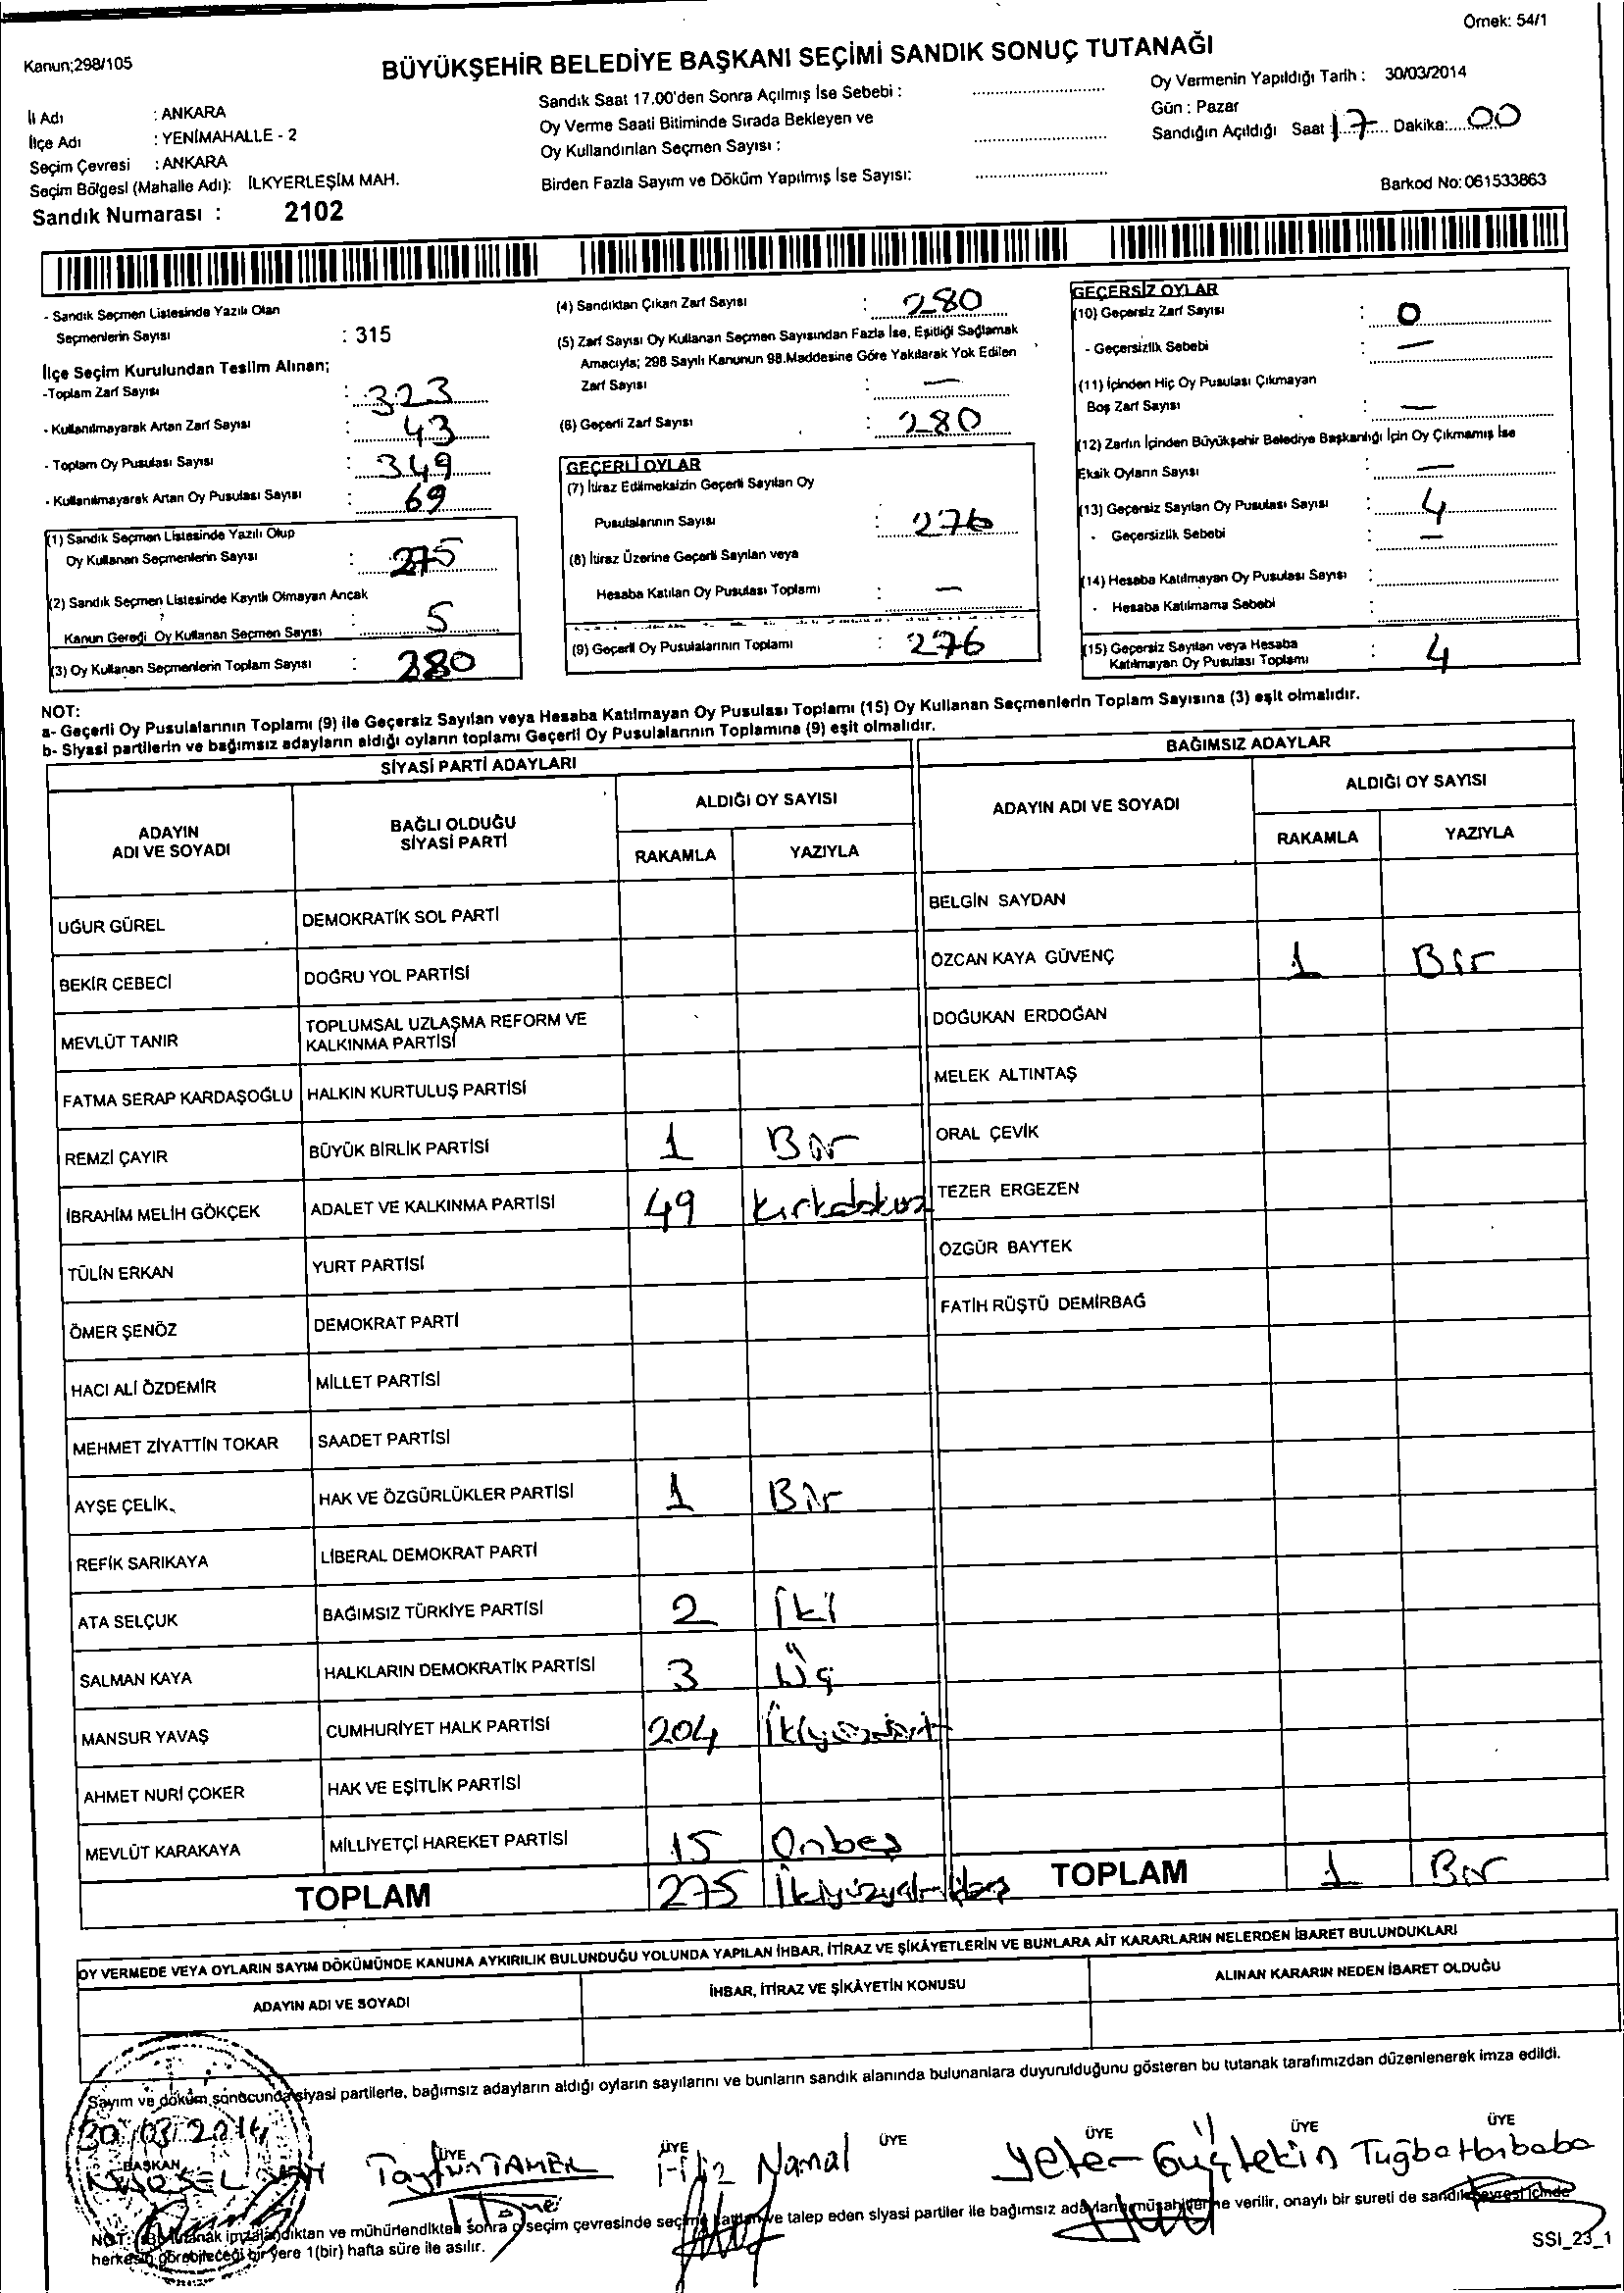 Örnek: 54/1
Kanun;298/105
BÜYÜKŞEHİR BELEDİYE BAŞKANI SEÇİMİ SANDIK SONUÇ TUTANAĞI
İl Adı : ANKARA
İlçe Adı : YENİMAHALLE - 2
Seçim Çevresi : ANKARA
Seçim Bölgesi (Mahalle Adı): İLKYERLEŞİM MAH.
Sandık Numarası : 2102
Sandık Saat 17.00'den Sonra Açılmış İse Sebebi :
Oy Verme Saati Bitiminde Sırada Bekleyen ve
Oy Kullandırılan Seçmen Sayısı :
Birden Fazla Sayım ve Döküm Yapılmış İse Sayısı:
Oy Vermenin Yapıldığı Tarih : 30/03/2014
Gün : Pazar
Sandığın Açıldığı Saat 17 Dakika: 00
Barkod No: 061533863
- Sandık Seçmen Listesinde Yazılı Olan
Seçmenlerin Sayısı : 315
İlçe Seçim Kurulundan Teslim Alınan;
-Toplam Zarf Sayısı : 323
- Kullanılmayarak Artan Zarf Sayısı : 43
- Toplam Oy Pusulası Sayısı : 349
- Kullanılmayarak Artan Oy Pusulası Sayısı : 69
(1) Sandık Seçmen Listesinde Yazılı Olup
Oy Kullanan Seçmenlerin Sayısı : 275
(2) Sandık Seçmen Listesinde Kayıtlı Olmayan Ancak
Kanun Gereği Oy Kullanan Seçmen Sayısı : 5
(3) Oy Kullanan Seçmenlerin Toplam Sayısı : 280
(4) Sandıktan Çıkan Zarf Sayısı : 280
(5) Zarf Sayısı Oy Kullanan Seçmen Sayısından Fazla İse, Eşitliği Sağlamak
Amacıyla; 298 Sayılı Kanunun 98.Maddesine Göre Yakılarak Yok Edilen
Zarf Sayısı : —
(6) Geçerli Zarf Sayısı : 280
GEÇERLİ OYLAR
(7) İtiraz Edilmeksizin Geçerli Sayılan Oy
Pusulalarının Sayısı : 276
(8) İtiraz Üzerine Geçerli Sayılan veya
Hesaba Katılan Oy Pusulası Toplamı : —
(9) Geçerli Oy Pusulalarının Toplamı : 276
GEÇERSİZ OYLAR
(10) Geçersiz Zarf Sayısı : 0
- Geçersizlik Sebebi : —
(11) İçinden Hiç Oy Pusulası Çıkmayan
Boş Zarf Sayısı : —
(12) Zarfın İçinden Büyükşehir Belediye Başkanlığı İçin Oy Çıkmamış İse
Eksik Oyların Sayısı : —
(13) Geçersiz Sayılan Oy Pusulası Sayısı : 4
- Geçersizlik Sebebi : —
(14) Hesaba Katılmayan Oy Pusulası Sayısı :
- Hesaba Katılmama Sebebi :
(15) Geçersiz Sayılan veya Hesaba
Katılmayan Oy Pusulası Toplamı : 4
NOT:
a- Geçerli Oy Pusulalarının Toplamı (9) ile Geçersiz Sayılan veya Hesaba Katılmayan Oy Pusulası Toplamı (15) Oy Kullanan Seçmenlerin Toplam Sayısına (3) eşit olmalıdır.
b- Siyasi partilerin ve bağımsız adayların aldığı oyların toplamı Geçerli Oy Pusulalarının Toplamına (9) eşit olmalıdır.
SİYASİ PARTİ ADAYLARI
ADAYIN
ADI VE SOYADI
BAĞLI OLDUĞU
SİYASİ PARTİ
ALDIĞI OY SAYISI
RAKAMLA YAZIYLA
UĞUR GÜREL DEMOKRATİK SOL PARTİ
BEKİR CEBECİ DOĞRU YOL PARTİSİ
MEVLÜT TANIR TOPLUMSAL UZLAŞMA REFORM VE
KALKINMA PARTİSİ
FATMA SERAP KARDAŞOĞLU HALKIN KURTULUŞ PARTİSİ
REMZİ ÇAYIR BÜYÜK BİRLİK PARTİSİ 1 Bir
İBRAHİM MELİH GÖKÇEK ADALET VE KALKINMA PARTİSİ 49 Kırkdokuz
TÜLİN ERKAN YURT PARTİSİ
ÖMER ŞENÖZ DEMOKRAT PARTİ
HACI ALİ ÖZDEMİR MİLLET PARTİSİ
MEHMET ZİYATTİN TOKAR SAADET PARTİSİ
AYŞE ÇELİK HAK VE ÖZGÜRLÜKLER PARTİSİ 1 Bir
REFİK SARIKAYA LİBERAL DEMOKRAT PARTİ
ATA SELÇUK BAĞIMSIZ TÜRKİYE PARTİSİ 2 İki
SALMAN KAYA HALKLARIN DEMOKRATİK PARTİSİ 3 Üç
MANSUR YAVAŞ CUMHURİYET HALK PARTİSİ 204 İkiyüzdört
AHMET NURİ ÇOKER HAK VE EŞİTLİK PARTİSİ
MEVLÜT KARAKAYA MİLLİYETÇİ HAREKET PARTİSİ 15 Onbeş
TOPLAM 275 İkiyüzyetmişbeş
BAĞIMSIZ ADAYLAR
ADAYIN ADI VE SOYADI
ALDIĞI OY SAYISI
RAKAMLA YAZIYLA
BELGİN SAYDAN
ÖZCAN KAYA GÜVENÇ 1 Bir
DOĞUKAN ERDOĞAN
MELEK ALTINTAŞ
ORAL ÇEVİK
TEZER ERGEZEN
ÖZGÜR BAYTEK
FATİH RÜŞTÜ DEMİRBAĞ
TOPLAM 1 Bir
OY VERMEDE VEYA OYLARIN SAYIM DÖKÜMÜNDE KANUNA AYKIRILIK BULUNDUĞU YOLUNDA YAPILAN İHBAR, İTİRAZ VE ŞİKÂYETLERİN VE BUNLARA AİT KARARLARIN NELERDEN İBARET BULUNDUKLARI
ADAYIN ADI VE SOYADI İHBAR, İTİRAZ VE ŞİKÂYETİN KONUSU ALINAN KARARIN NEDEN İBARET OLDUĞU
Sayım ve döküm sonucunda siyasi partilerle, bağımsız adayların aldığı oyların sayılarını ve bunların sandık alanında bulunanlara duyurulduğunu gösteren bu tutanak tarafımızdan düzenlenerek imza edildi.
30/03/2014
BAŞKAN ÜYE ÜYE ÜYE ÜYE ÜYE ÜYE
Tayfun TAMER Filiz Namal Yeter Güçtekin Tuğba Harbaba
NOT: Bu tutanak imzalandıktan ve mühürlendikten sonra o seçim çevresinde seçime katılan ve talep eden siyasi partiler ile bağımsız adayların müşahitlerine verilir, onaylı bir sureti de sandık çevresi içinde
herkesin görebileceği bir yere 1(bir) hafta süre ile asılır.
SSI_23_1